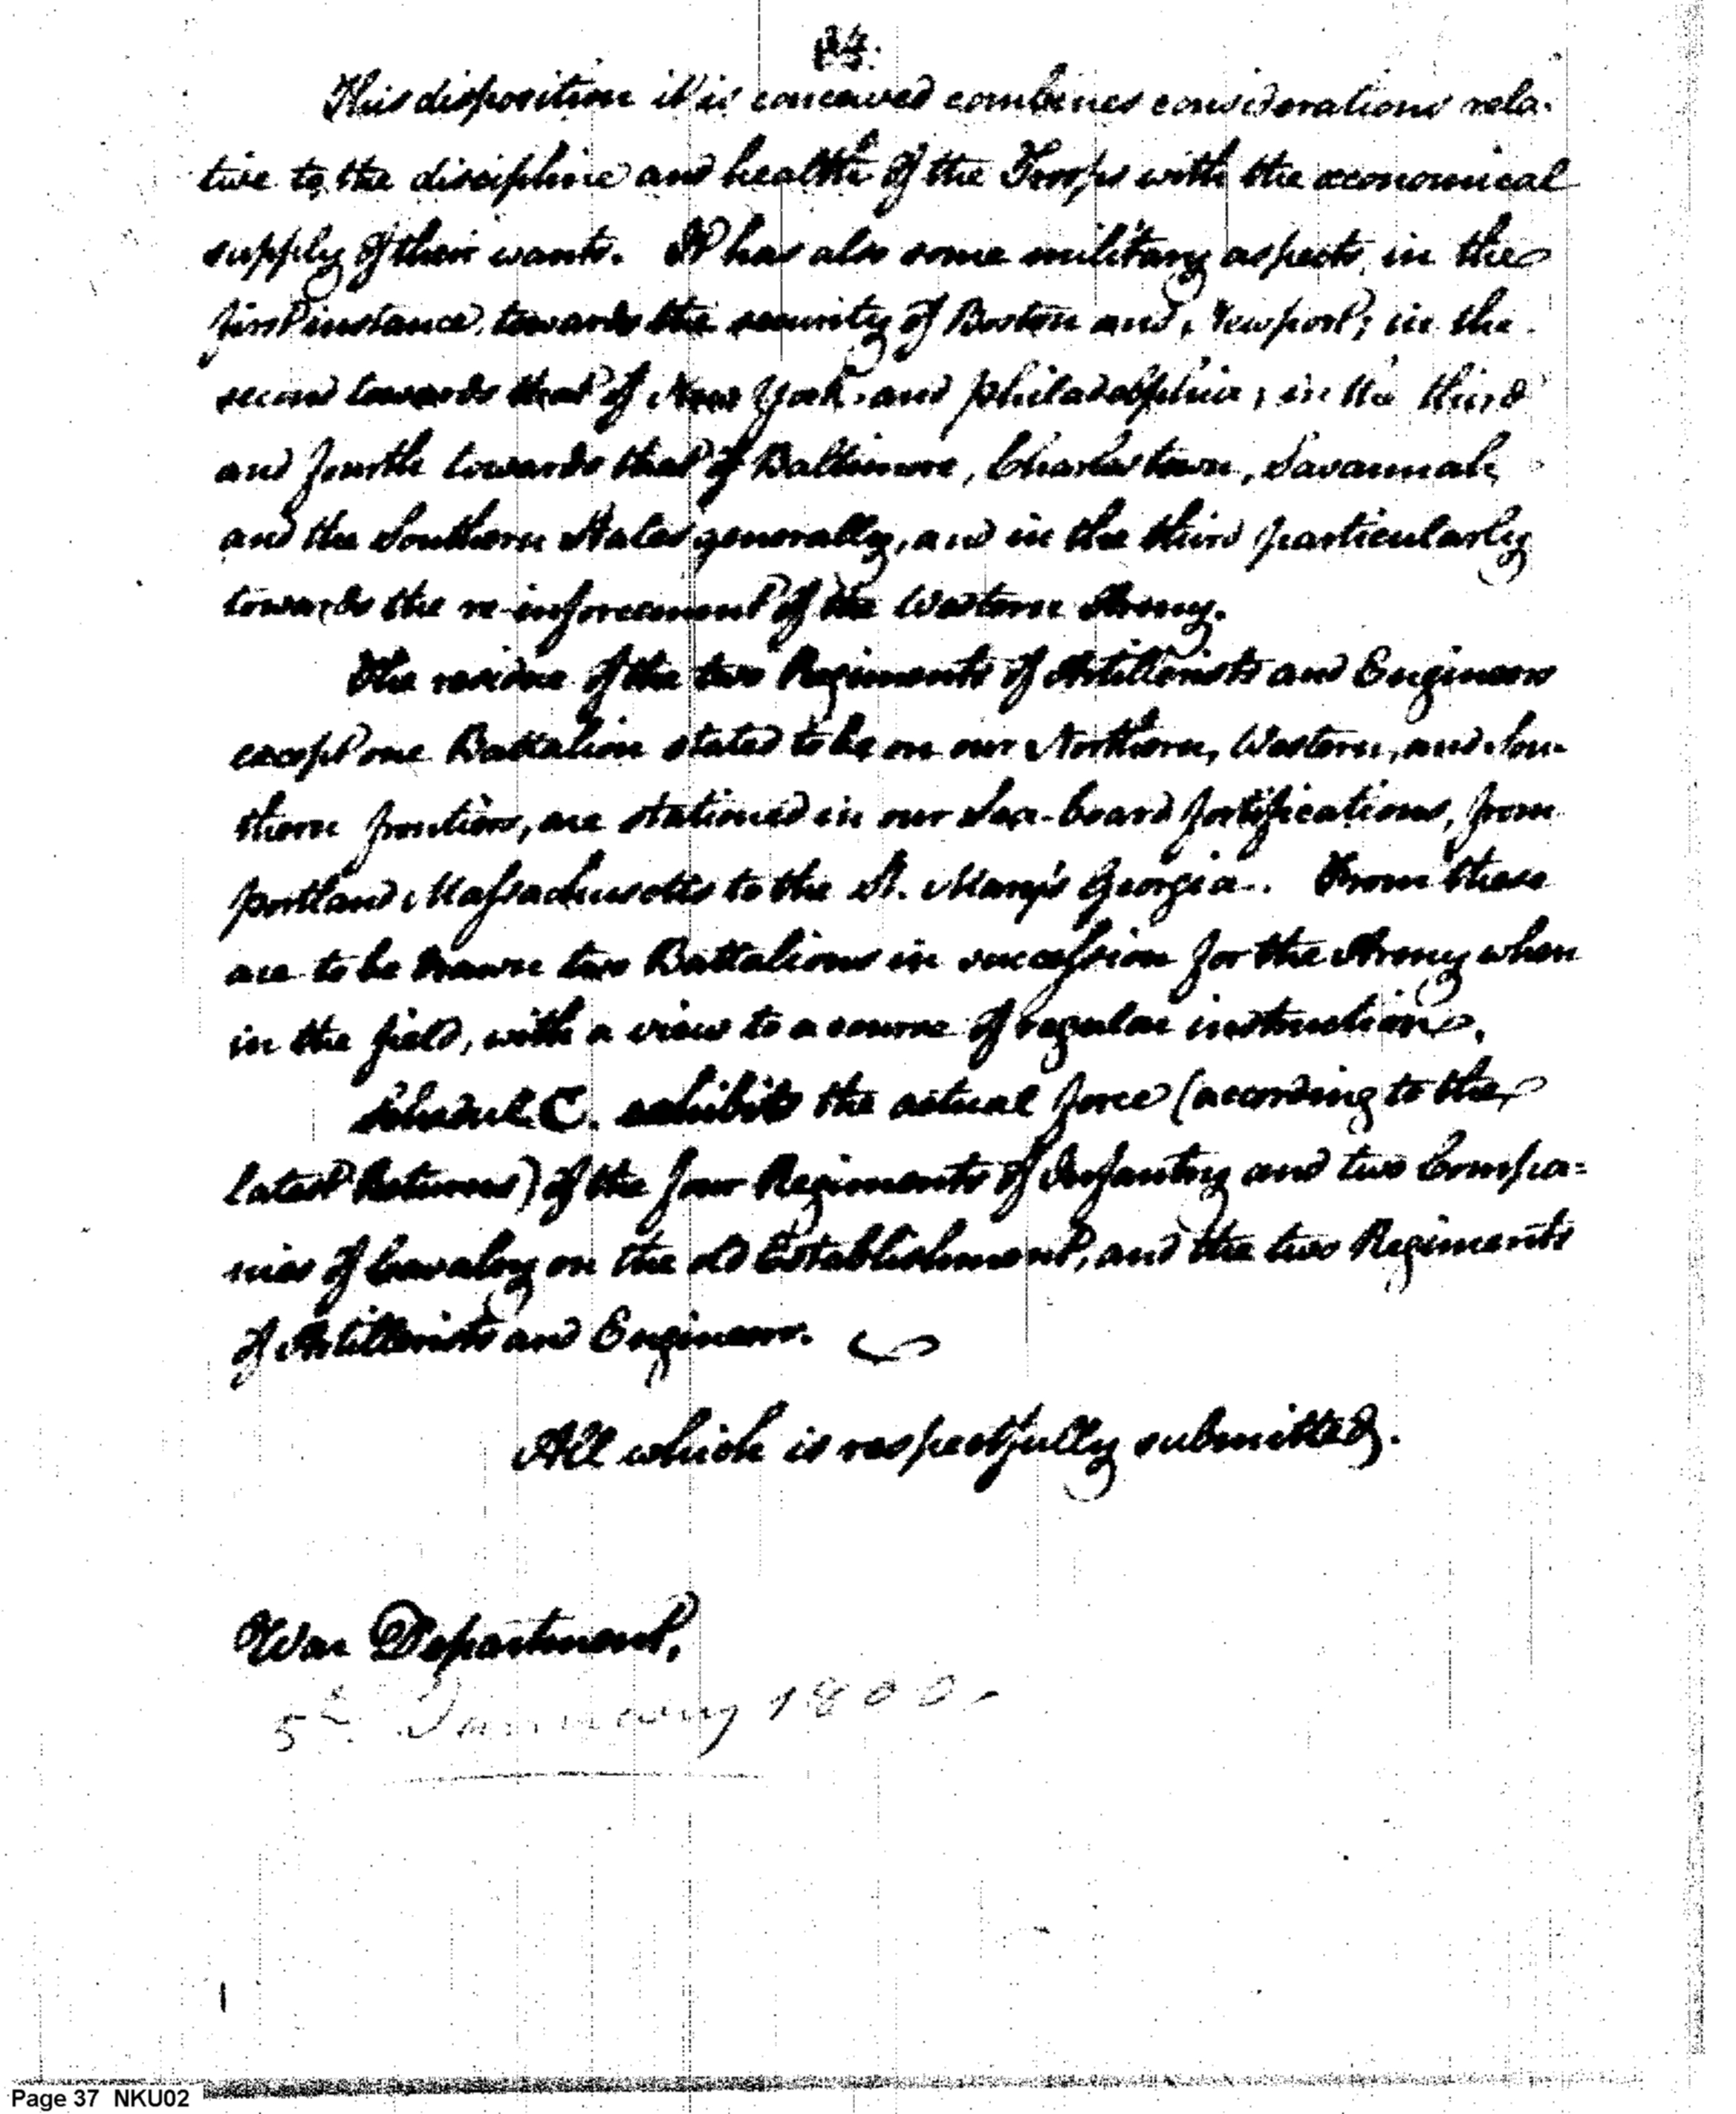 24.
This disposition it is conceived combines considerations rela-
tive to the discipline and health of the Troops with the œconomical
supply of their wants. It has also some military aspects, in the
first instance, towards the security of Boston and Newport; in the
second towards that of New York and philadelphia; in the third
and fourth towards that of Baltimore, Charlestown, Savannah,
and the Southern States generally, and in the third particularly
towards the re-inforcement of the Western Army.
The residue of the two Regiments of Artillerists and Engineers
except one Battalion stated to be on our Northern, Western, and Sou-
thern frontiers, are stationed in our Sea-board fortifications, from
portland Massachusetts to the St. Mary's Georgia. From these
are to be drawn two Battalions in succession for the Army when
in the field, with a view to a course of regular instruction.
Schedule C. exhibits the actual force (according to the
latest Returns) of the four Regiments of Infantry and two Compa=
nies of Cavalry on the old Establishment, and the two Regiments
of Artillerists and Engineers.
All which is respectfully submitted.
War Department,
5th January 1800.
Page 37 NKU02